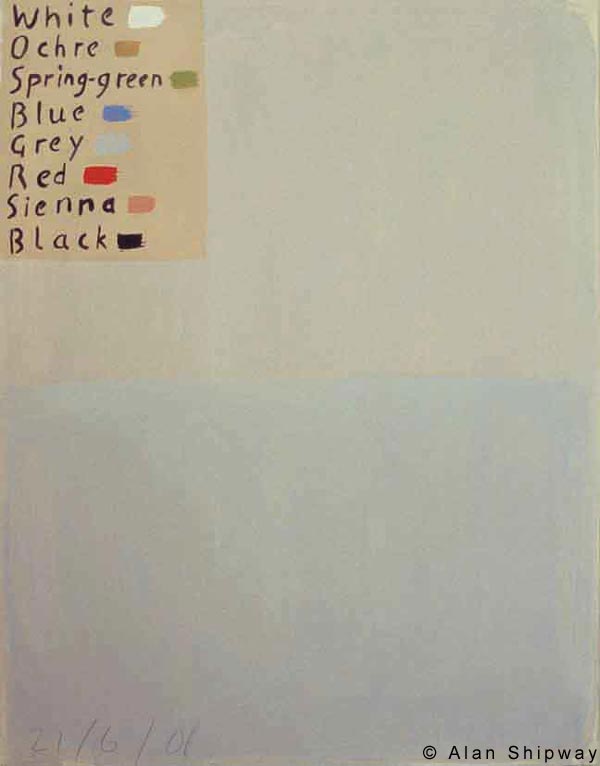 White
Ochre
Spring-green
Blue
Grey
Red
Sienna
Black
21/6/01
© Alan Shipway